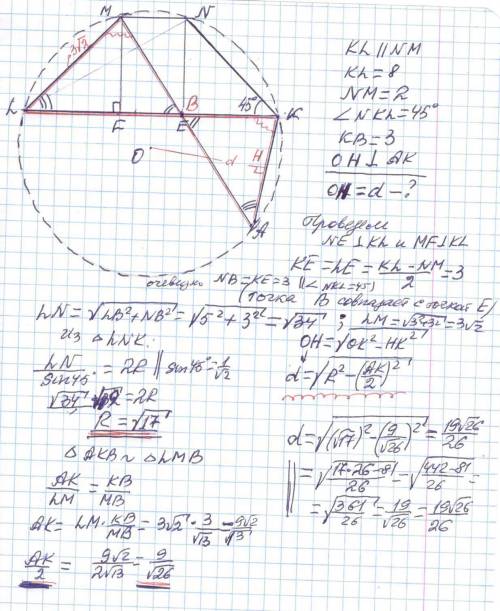 M
N
3√3
L
F
E
B
45°
K
O
d
H
A
KL || NM
KL = 8
NM = 2
∠NKL = 45°
KB = 3
OH ⊥ AK
OH = d - ?
Проведем
NE ⊥ KL и MF ⊥ KL
KE = LE = (KL - NM)/2 = 3
очевидно NB = KE = 3 || ∠NKL = 45°)
(точка B совпадает с точкой E)
LN = √(LB² + NB²) = √(5² + 3²) = √34 ; LM = √(3²+3²) = 3√2
Из △LNK:
LN/sin45° = 2R || sin45° = 1/√2
√34 · √2 = 2R
R = √17
△AKB ~ △LMB
AK/LM = KB/MB
AK = LM · KB/MB = 3√2 · 3/√13 = 9√2/√13
AK/2 = 9√2/2√13 = 9/√26
OH = √(OK² - HK²)
d = √(R² - (AK/2)²)
d = √((√17)² - (9/√26)²) = 19√26/26
|| = √((17·26 - 81)/26) = √((442 - 81)/26) =
= √(361/26) = 19/√26 = 19√26/26